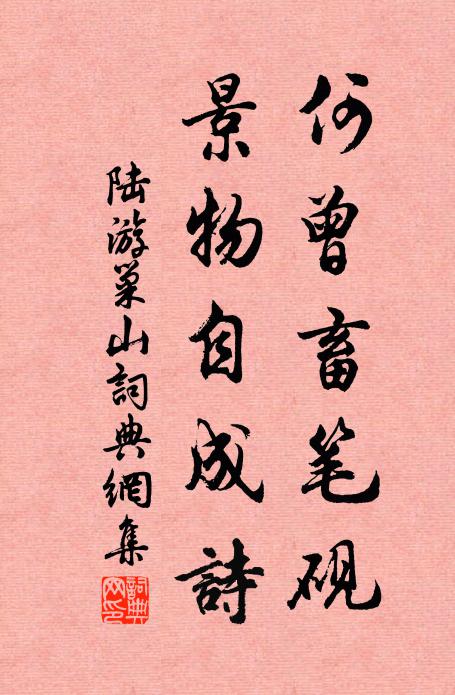 何曾畜笔硯
景物自成詩
陆游巢山詞典網集
詞典网印